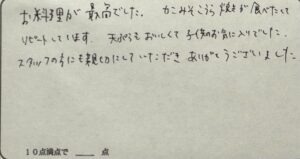 お料理が最高でした。かにみそこうら焼きが食べたくて
リピートしています。天ぷらもおいしくて子供のお気に入りでした。
スタッフの方にも親切にしていただきありがとうございました。
10点満点で ____ 点